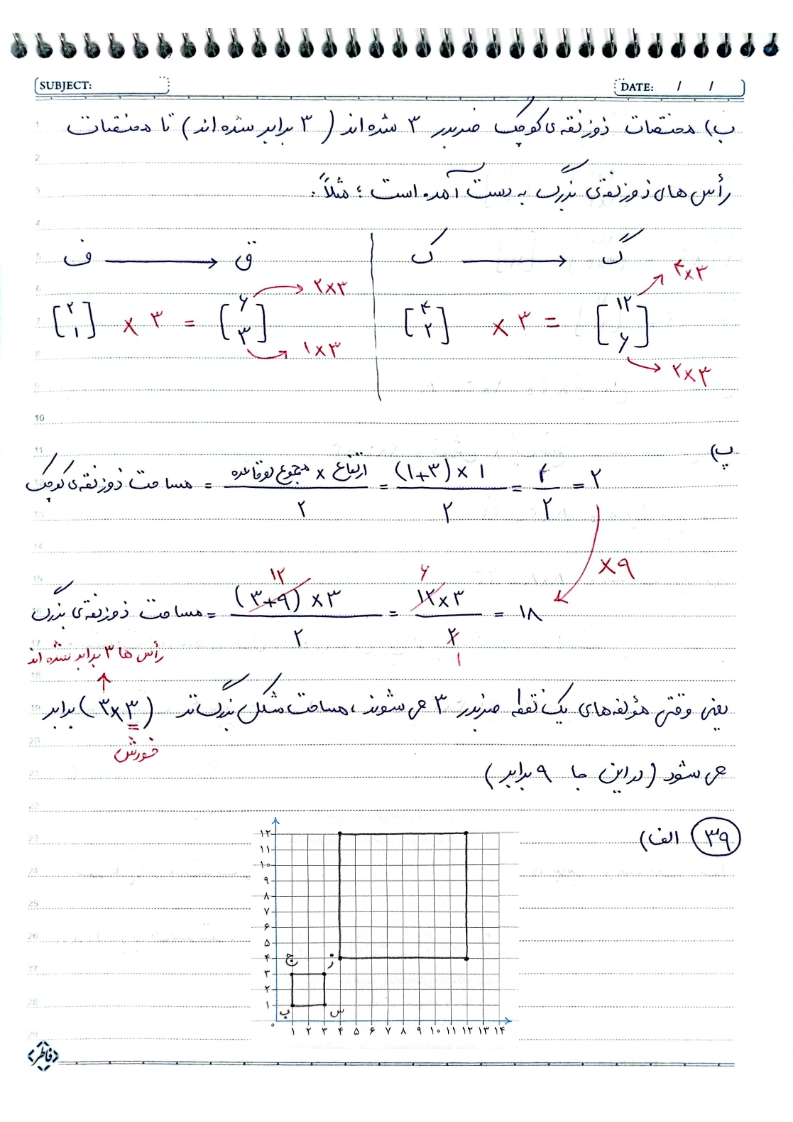 SUBJECT:
DATE: / /
ب) مختصات ذوزنقه‌ی کوچک ضربدر ۳ شده‌اند ( ۳ برابر شده‌اند ) تا مختصات
رأس‌های ذوزنقه‌ی بزرگ به دست آمده است ؛ مثلاً :
ک → گ
[۴ ۲] × ۳ = [۱۲ ۶]
۴×۳
۲×۳
ف → ق
[۲ ۱] × ۳ = [۶ ۳]
۲×۳
۱×۳
پ)
مساحت ذوزنقه‌ی کوچک = ارتفاع × مجموع دو قاعده / ۲ = (۱+۳) × ۱ / ۲ = ۴ / ۲ = ۲
×۹
مساحت ذوزنقه‌ی بزرگ = (۳+۹) × ۳ / ۲ = ۱۲×۳ / ۲ = ۱۸
۱۲
۶
۱
رأس ها ۳ برابر شده اند
یعنی وقتی مؤلفه‌های یک نقطه ضربدر ۳ می شوند ، مساحت شکل بزرگ‌تر (۳×۳) برابر
خودش
می شود ( در این جا ۹ برابر )
۳۹ الف)
۱۲
۱۱
۱۰
۹
۸
۷
۶
۵
۴
۳
۲
۱
ج ز
ب س
۰ ۱ ۲ ۳ ۴ ۵ ۶ ۷ ۸ ۹ ۱۰ ۱۱ ۱۲ ۱۳ ۱۴
فاطر